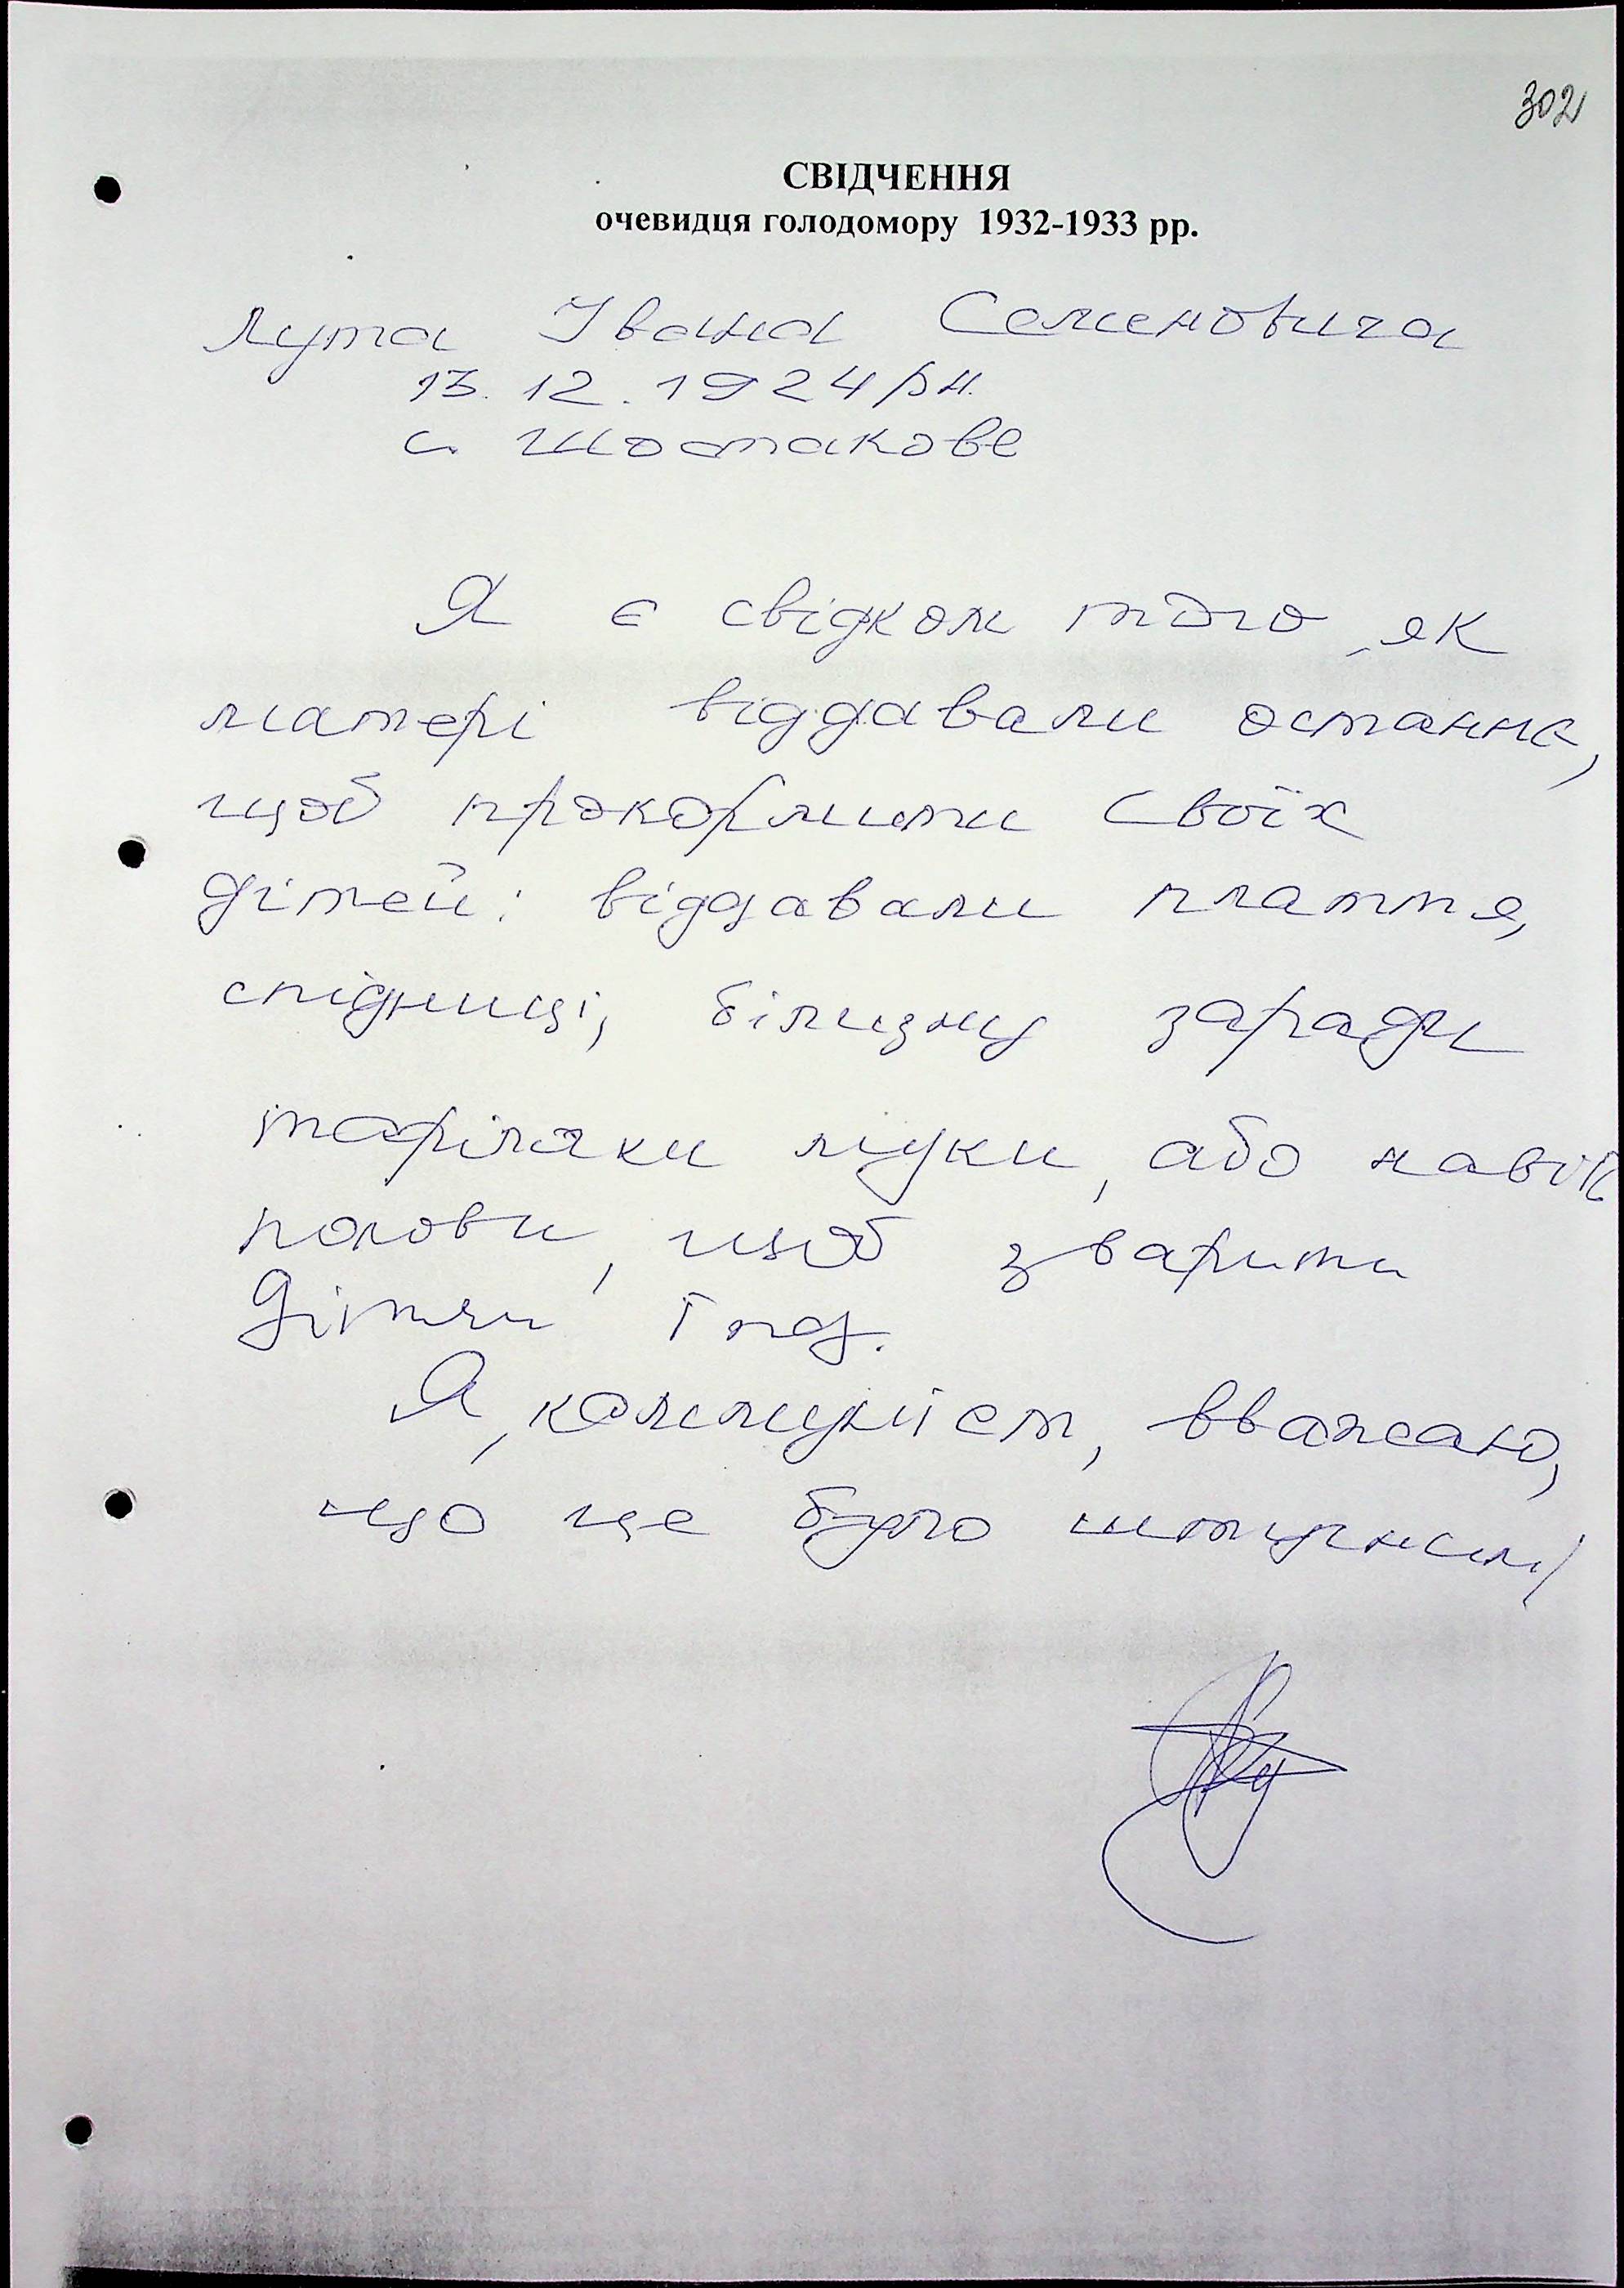 302
СВІДЧЕННЯ
очевидця голодомору 1932-1933 рр.
Лута Івана Семеновича
13.12.1924 рн.
с. Шостакове
Я є свідком того, як
матері віддавали останнє,
щоб прокормити своїх
дітей: віддавали плаття,
спідниці, білизну заради
тарілки муки, або навіть
полови, щоб зварити
дітям їжу.
Я, комуніст, вважаю,
що це було штучним!